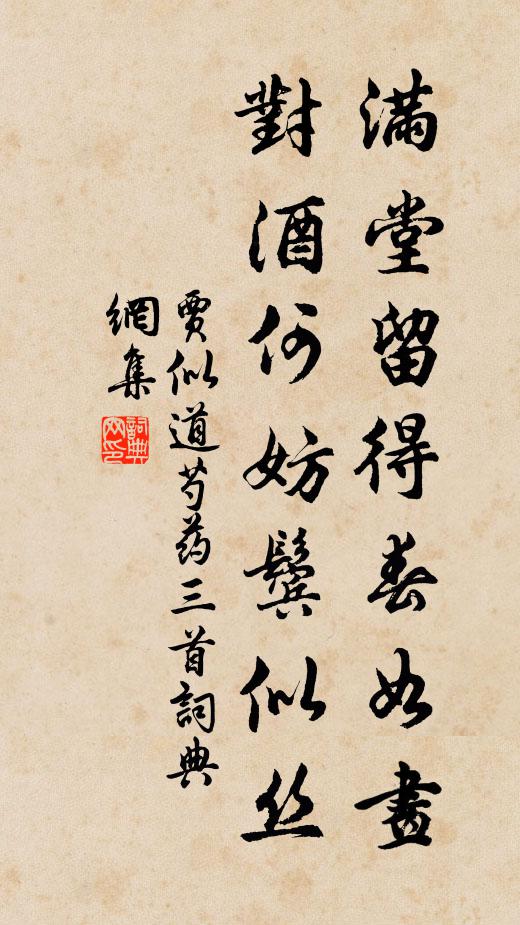 满堂留得春如畫
對酒何妨鬓似丝
賈似道芍药三首詞典
網集
詞典網印